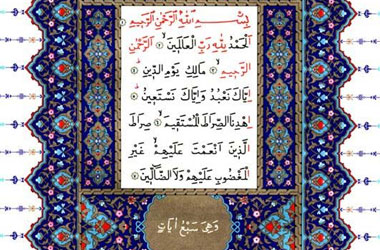 بِسْمِ اللهِ الرَّحْمٰنِ الرَّحِيمِ ﴿١﴾
اَلْحَمْدُ لِلهِ رَبِّ الْعَالَمِينَ ﴿٢﴾ اَلرَّحْمٰنِ
الرَّحِيمِ ﴿٣﴾ مَالِكِ يَوْمِ الدِّينِ ﴿٤﴾
اِيَّاكَ نَعْبُدُ وَاِيَّاكَ نَسْتَعِينُ ﴿٥﴾
اِهْدِنَا الصِّرَاطَ الْمُسْتَقِيمَ ﴿٦﴾ صِرَاطَ
الَّذِينَ اَنْعَمْتَ عَلَيْهِمْ غَيْرِ
الْمَغْضُوبِ عَلَيْهِمْ وَلَا الضَّالِّينَ ﴿٧﴾
وَهِيَ سَبْعُ اٰيَاتٍ